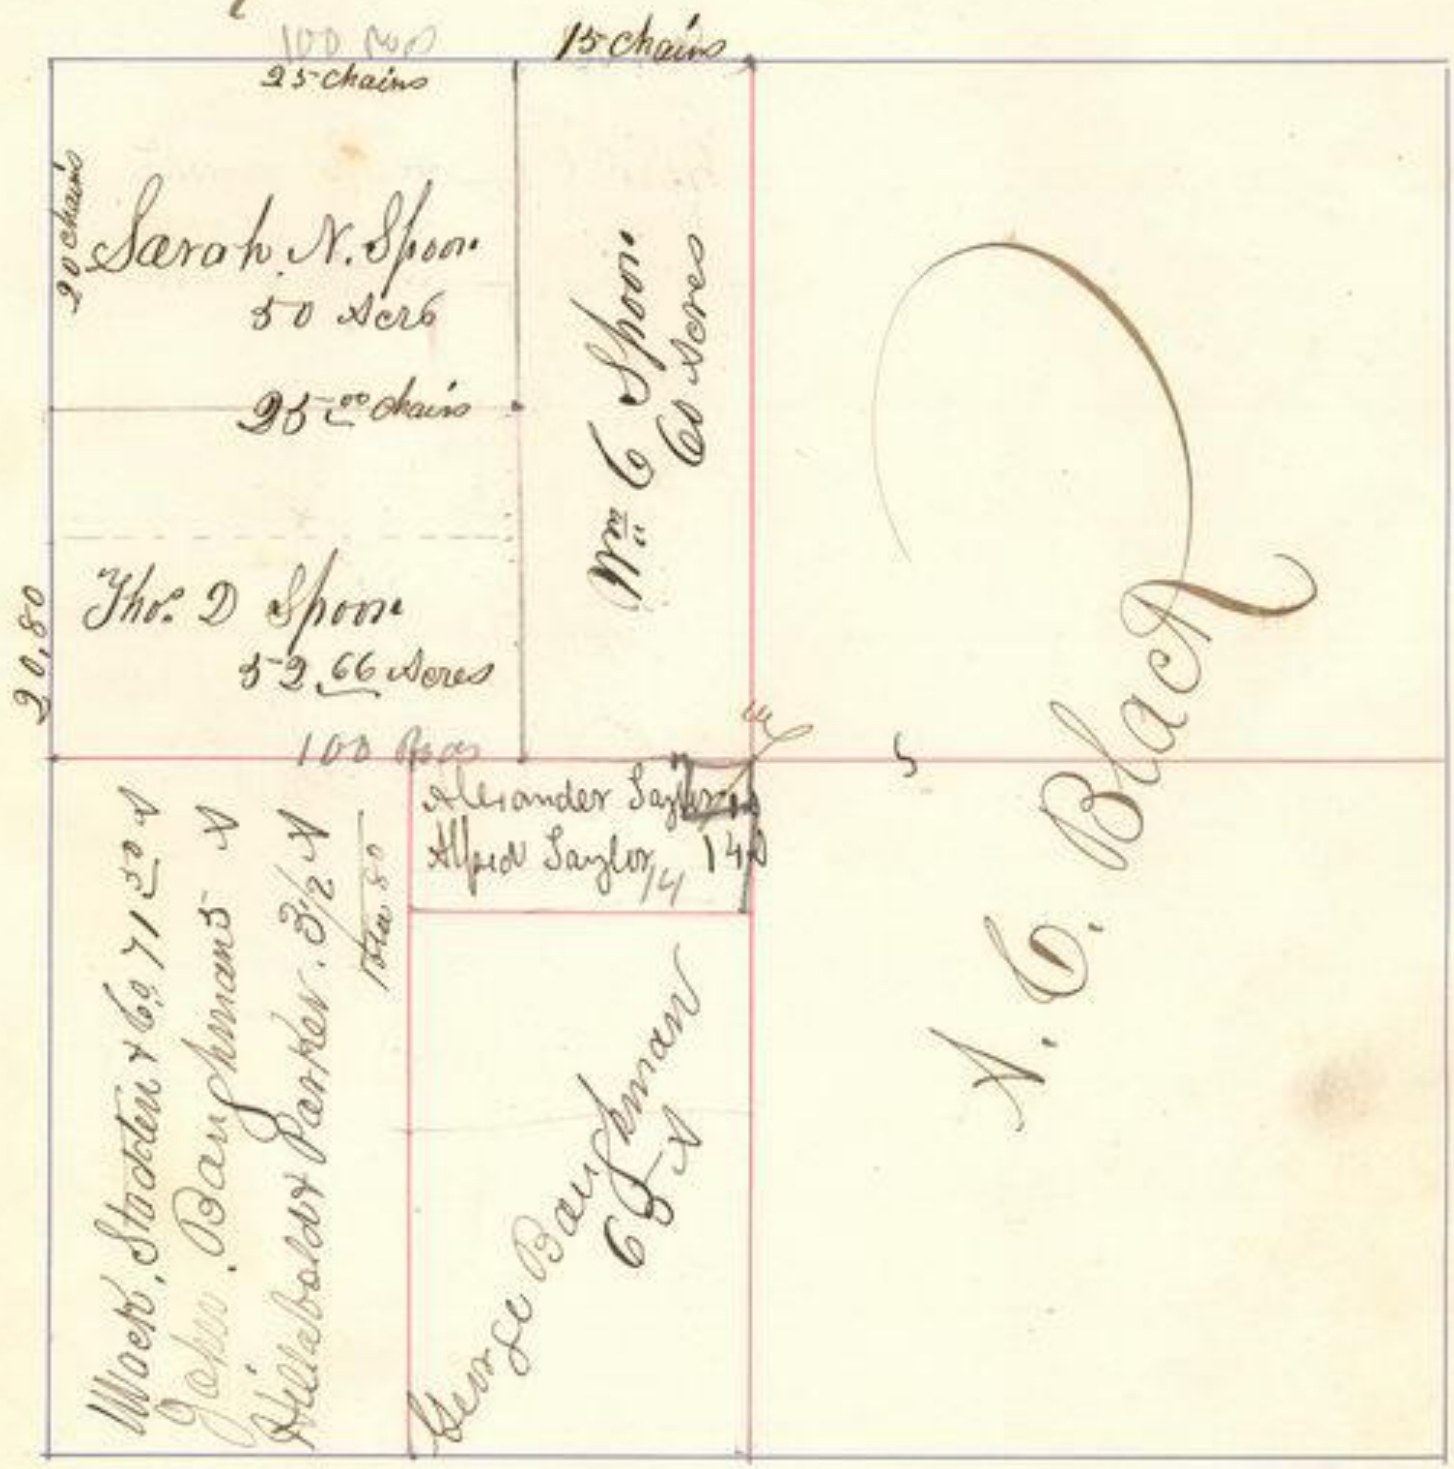 100 rods
15 chains
25 chains
20 chains
Sarah. N. Spoon
50 Acrs
25 00 chains
Wm C Spoon
60 Acres
20,80
Tho. D Spoon
52.66 Acres
100 Rods
5
Alexander Saylor
Alfred Saylor 14
14 A
Mack, Stadden & Co 71 50 A
John. Baughman 5 A
Hillabold & Parker. 3 1/2 A
80
George Baughman
65 A
A. C. Black